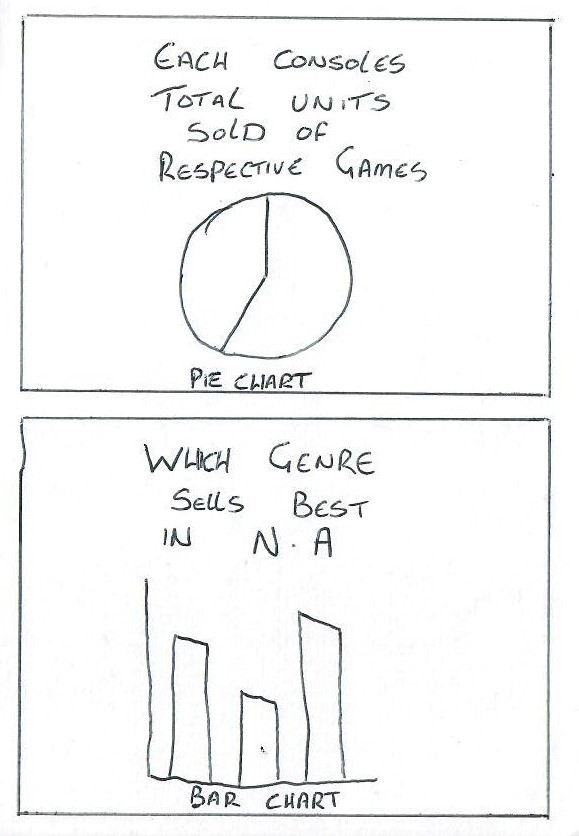 EACH CONSOLES
TOTAL UNITS
SOLD OF
RESPECTIVE GAMES
PIE CHART
WHICH GENRE
SELLS BEST
IN N.A
BAR CHART